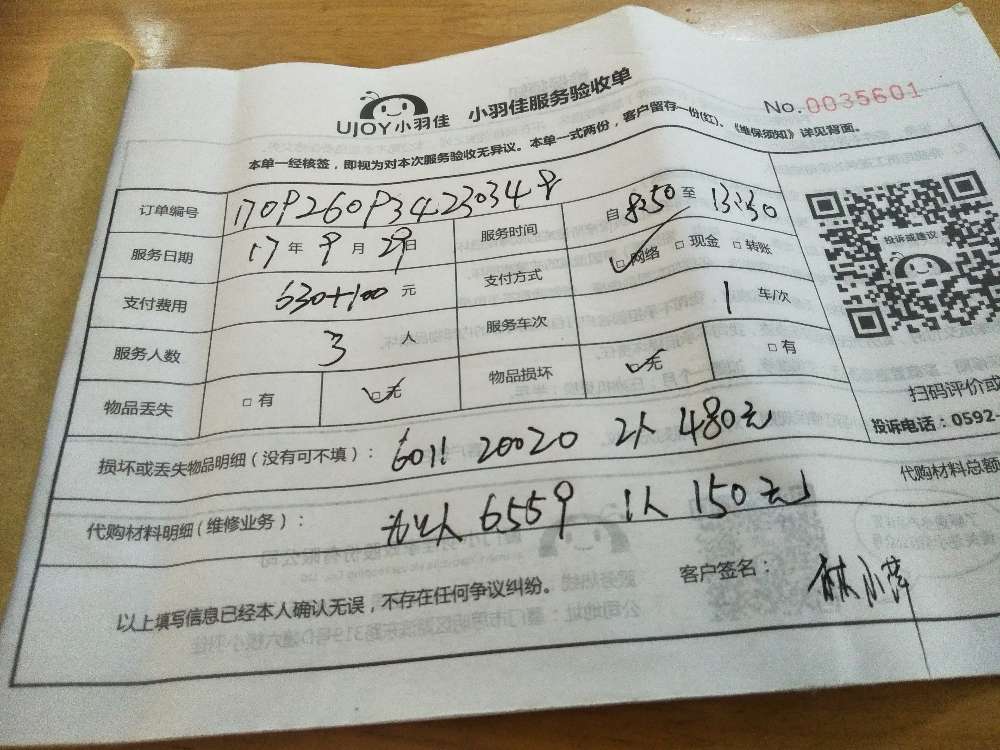 UJOY小羽佳 小羽佳服务验收单 No.0035601
本单一经核签，即视为对本次服务验收无异议。本单一式两份，客户留存一份(红)、《维保须知》详见背面。
订单编号 服务时间 自 8:50 至 13:30
服务日期 17 年 9 月 29 日 支付方式 □网络 □现金 □转账
支付费用 630+100 元 服务车次 1 车/次
服务人数 3 人 物品损坏 □无 □有
物品丢失 □有 □无
投诉或建议
扫码评价或
投诉电话：0592-
损坏或丢失物品明细（没有可不填）： 20020 2人 480元
代购材料明细（维修业务）： 6559 1人 150元 代购材料总额
以上填写信息已经本人确认无误，不存在任何争议纠纷。 客户签名： 林小萍